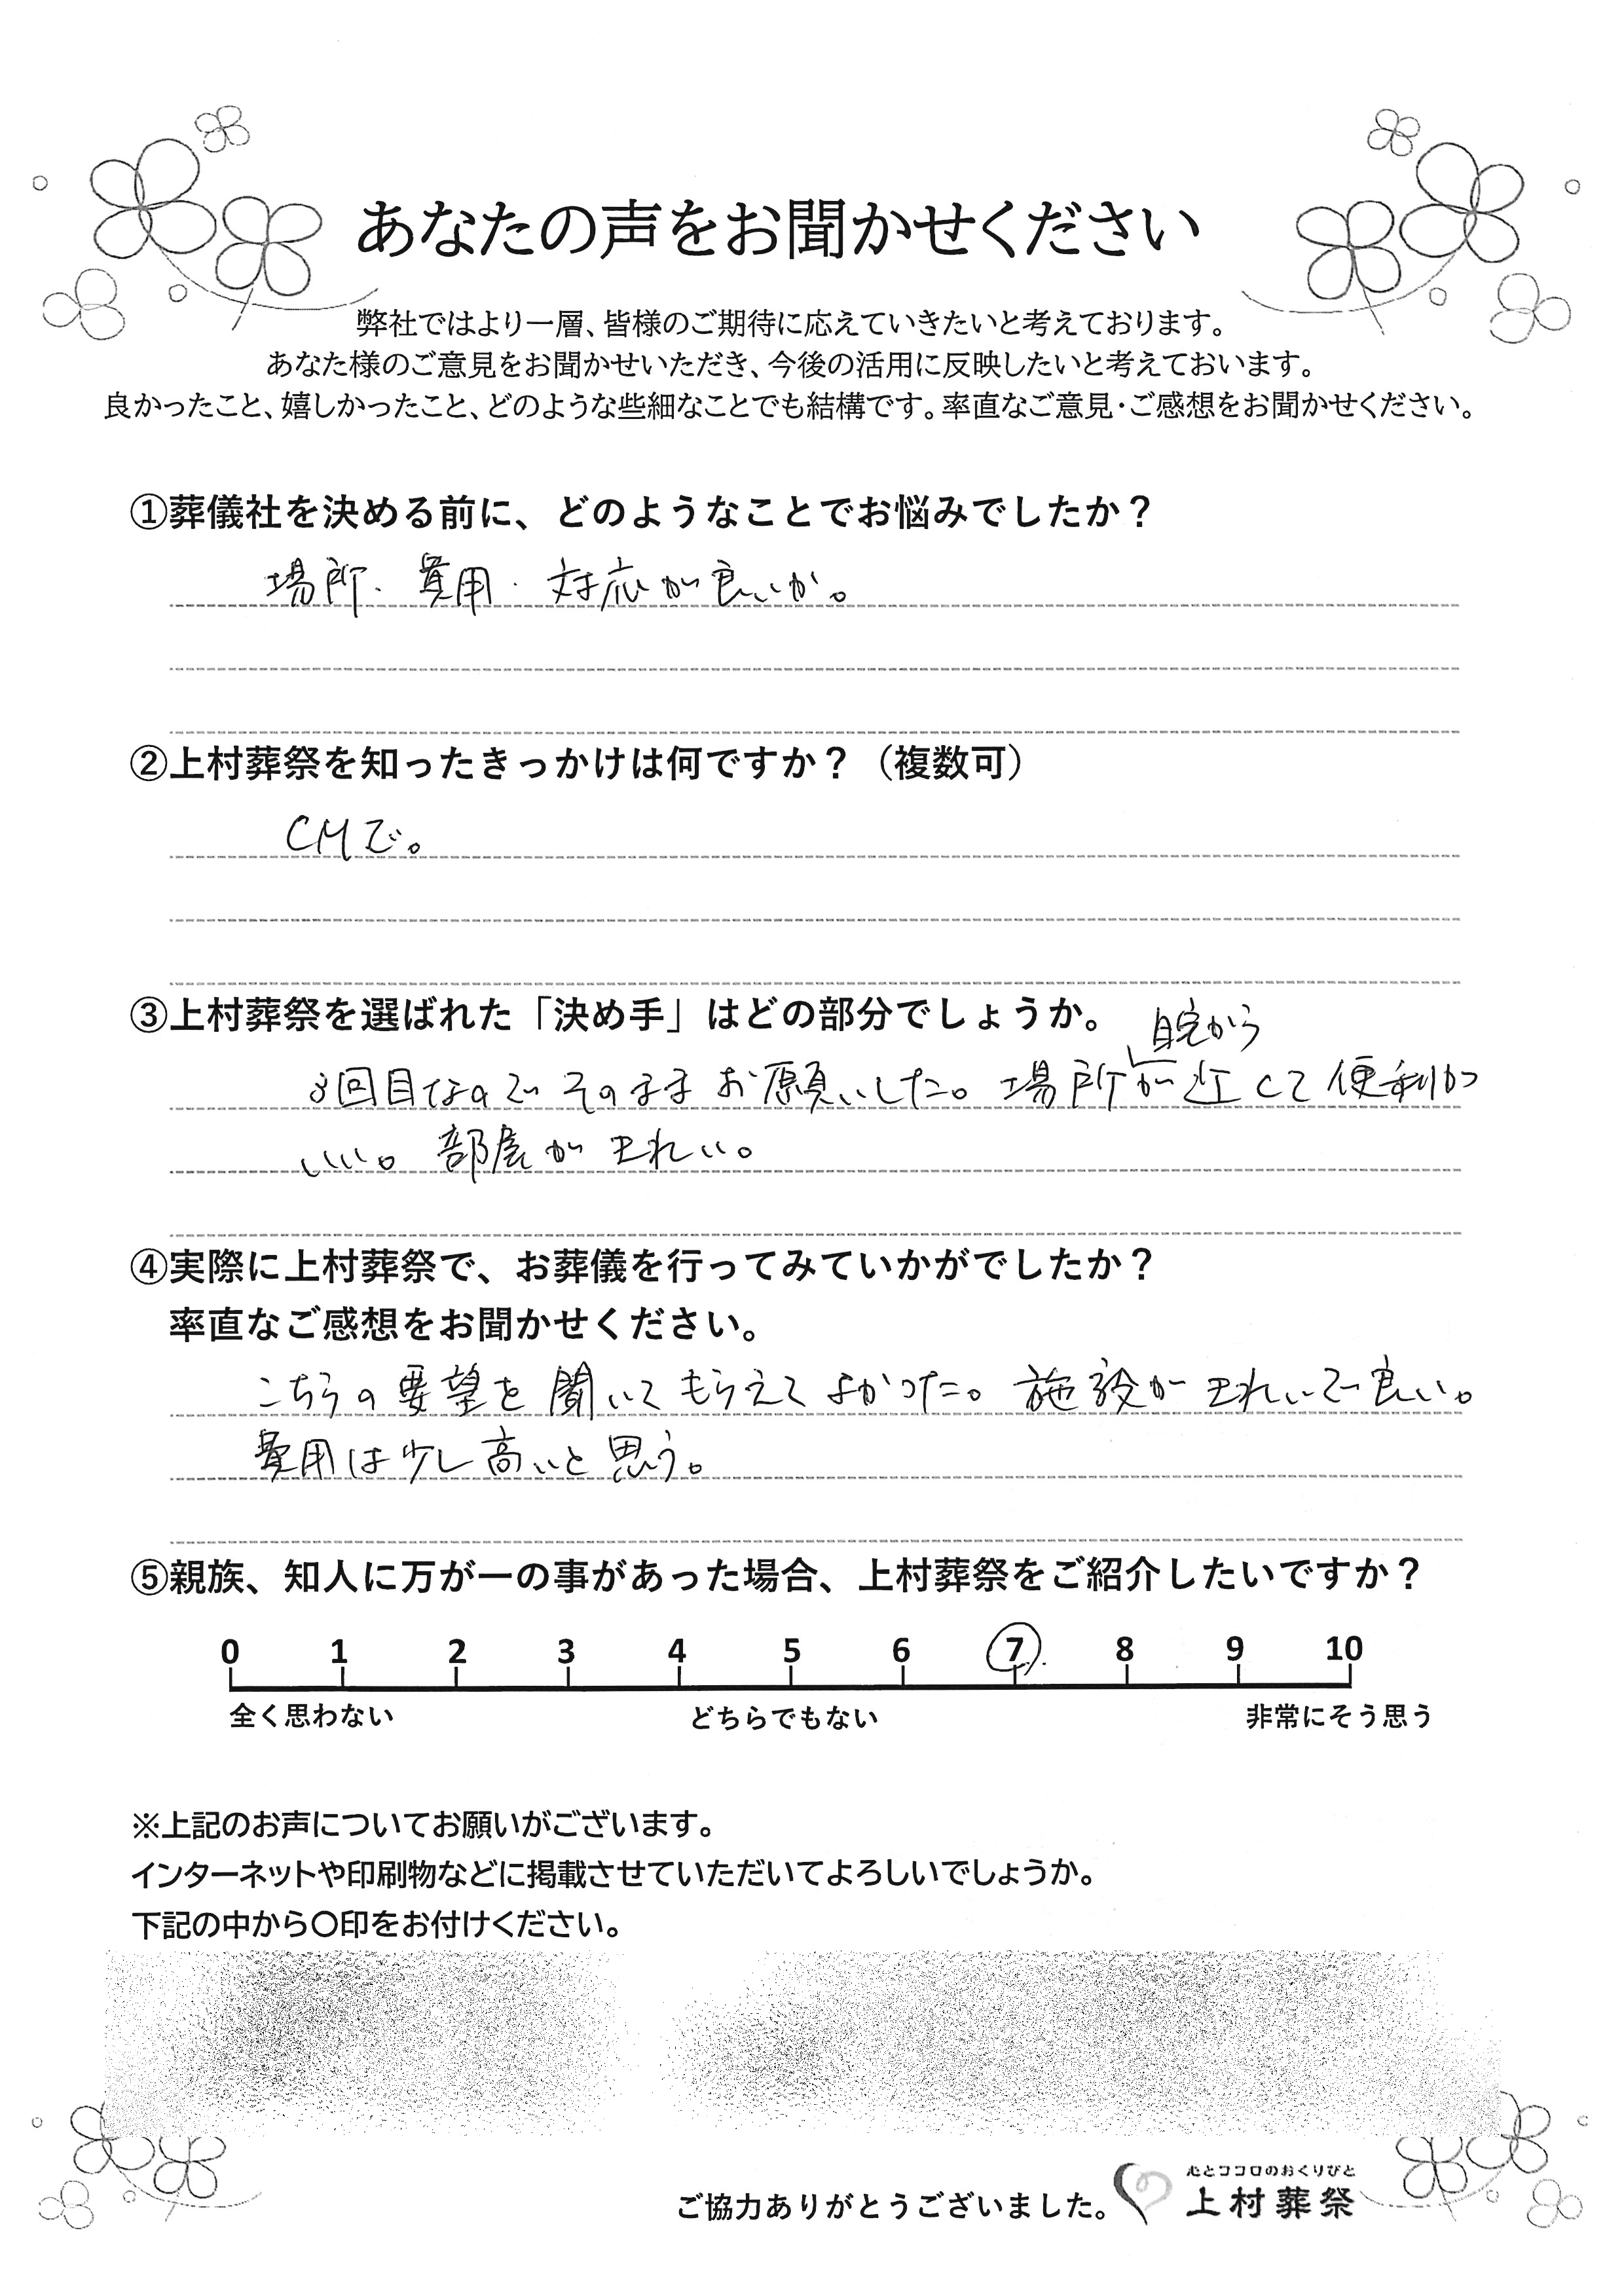 あなたの声をお聞かせください
弊社ではより一層、皆様のご期待に応えていきたいと考えております。
あなた様のご意見をお聞かせいただき、今後の活用に反映したいと考えておいます。
良かったこと、嬉しかったこと、どのような些細なことでも結構です。率直なご意見・ご感想をお聞かせください。
①葬儀社を決める前に、どのようなことでお悩みでしたか？
場所・費用・対応が良いか。
②上村葬祭を知ったきっかけは何ですか？（複数可）
CMで。
③上村葬祭を選ばれた「決め手」はどの部分でしょうか。
自宅から
3回目なのでそのままお願いした。場所が近くて便利が
いい。部屋がきれい。
④実際に上村葬祭で、お葬儀を行ってみていかがでしたか？
率直なご感想をお聞かせください。
こちらの要望を聞いてもらえてよかった。施設がきれいで良い。
費用は少し高いと思う。
⑤親族、知人に万が一の事があった場合、上村葬祭をご紹介したいですか？
0 1 2 3 4 5 6 7 8 9 10
全く思わない どちらでもない 非常にそう思う
※上記のお声についてお願いがございます。
インターネットや印刷物などに掲載させていただいてよろしいでしょうか。
下記の中から〇印をお付けください。
心とココロのおくりびと
ご協力ありがとうございました。 上村葬祭